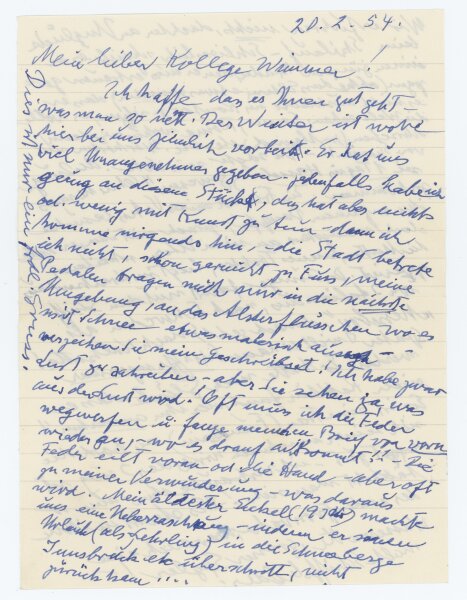 20.2.54.
Mein lieber Kollege Wimmer!
Ich hoffe das es Ihnen gut geht –
was man so nennt. Der Winter ist wohl
hier bei uns ziemlich vorbei. Er hat uns
viel Unangenehmes gegeben – jedenfalls habe ich
genug an diesem Stück, das hat aber nichts
od. wenig mit Kunst zu tun – denn ich
komme nirgends hin, – die Stadt betrete
ich nicht, schon garnicht zu Fuss, meine
Pedalen tragen mich nur in die nächste
Umgebung, an das Alsterflüsschen wo es
mit Schnee etwas malerisch aussah – –
verzeihen Sie mein Geschreibsel! Ich habe zwar
Lust zu schreiben, aber Sie sehen ja, was
aus der Lust wird! Oft muss ich die Feder
wegwerfen u. fange meinen Brief von vorn
wieder an, – wo es drauf ankommt!! – Die
Feder eilt voran od. die Hand – aber oft
zu meiner Verwunderung – was daraus
wird. Mein ältester Enkel (19) machte
uns eine Ueberraschung – indem er seinen
Urlaub (als Lehrling) in die Schneeberge
Innsbruck etc überschritt, nicht
zurück kam ....
Dies ist nur ein frdl. Gruss.